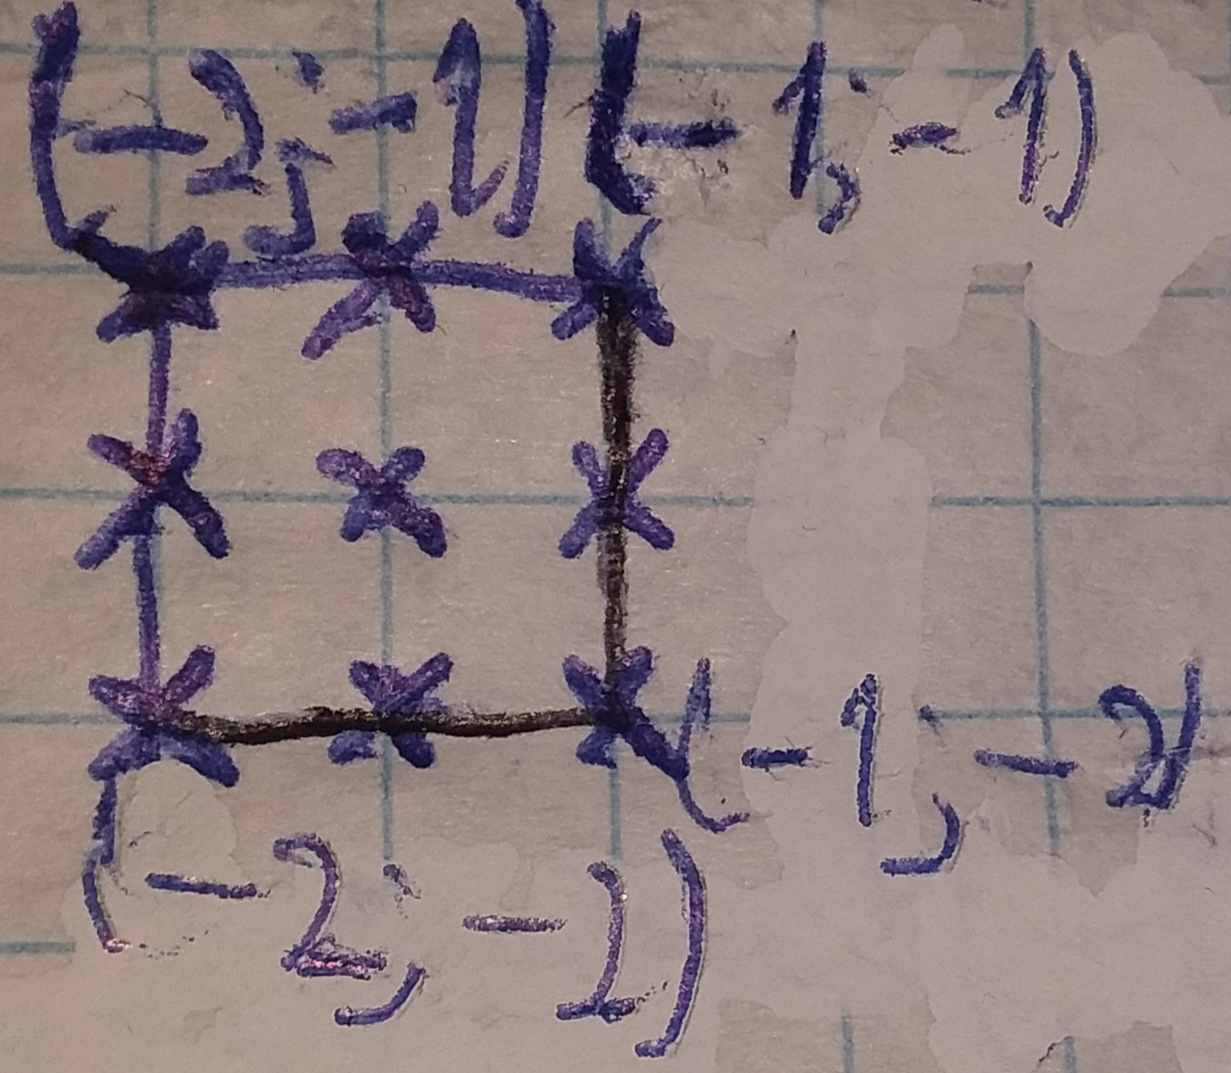 (-2; -1) (-1; -1)
(-1; -2)
(-2; -2)